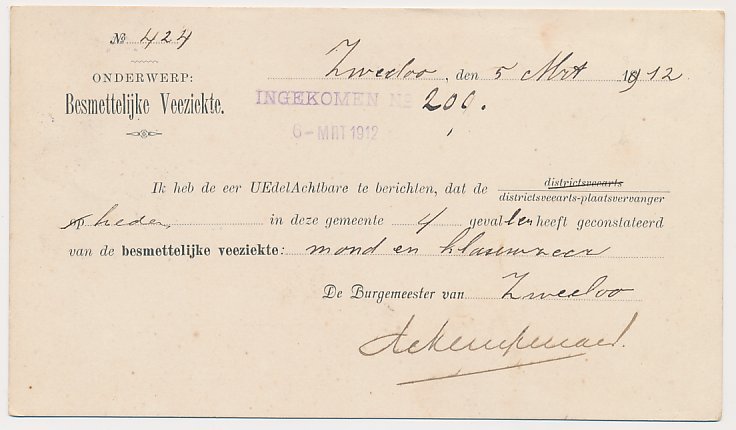 № 424
ONDERWERP:
Besmettelijke Veeziekte.
Zweeloo, den 5 Mrt 1912
INGEKOMEN No 200.
6-MRT 1912
Ik heb de eer UEdelAchtbare te berichten, dat de districtsveearts
districtsveearts-plaatsvervanger
op heden, in deze gemeente 4 gevallen heeft geconstateerd
van de besmettelijke veeziekte: mond en klauwzeer
De Burgemeester van Zweeloo